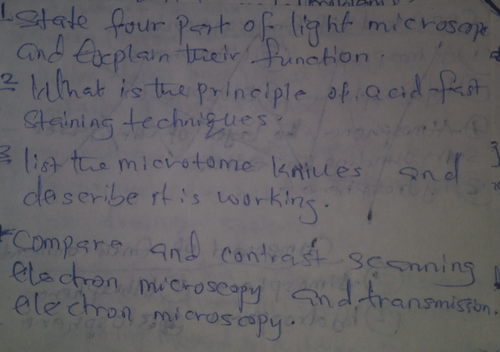 1. State four part of light microscope
and Explain their function.
2 What is the principle of acid-fast
staining techniques.
3 list the microtome knives and
describe it is working.
Compare and contrast scanning
electron microscopy and transmission.
electron microscopy.